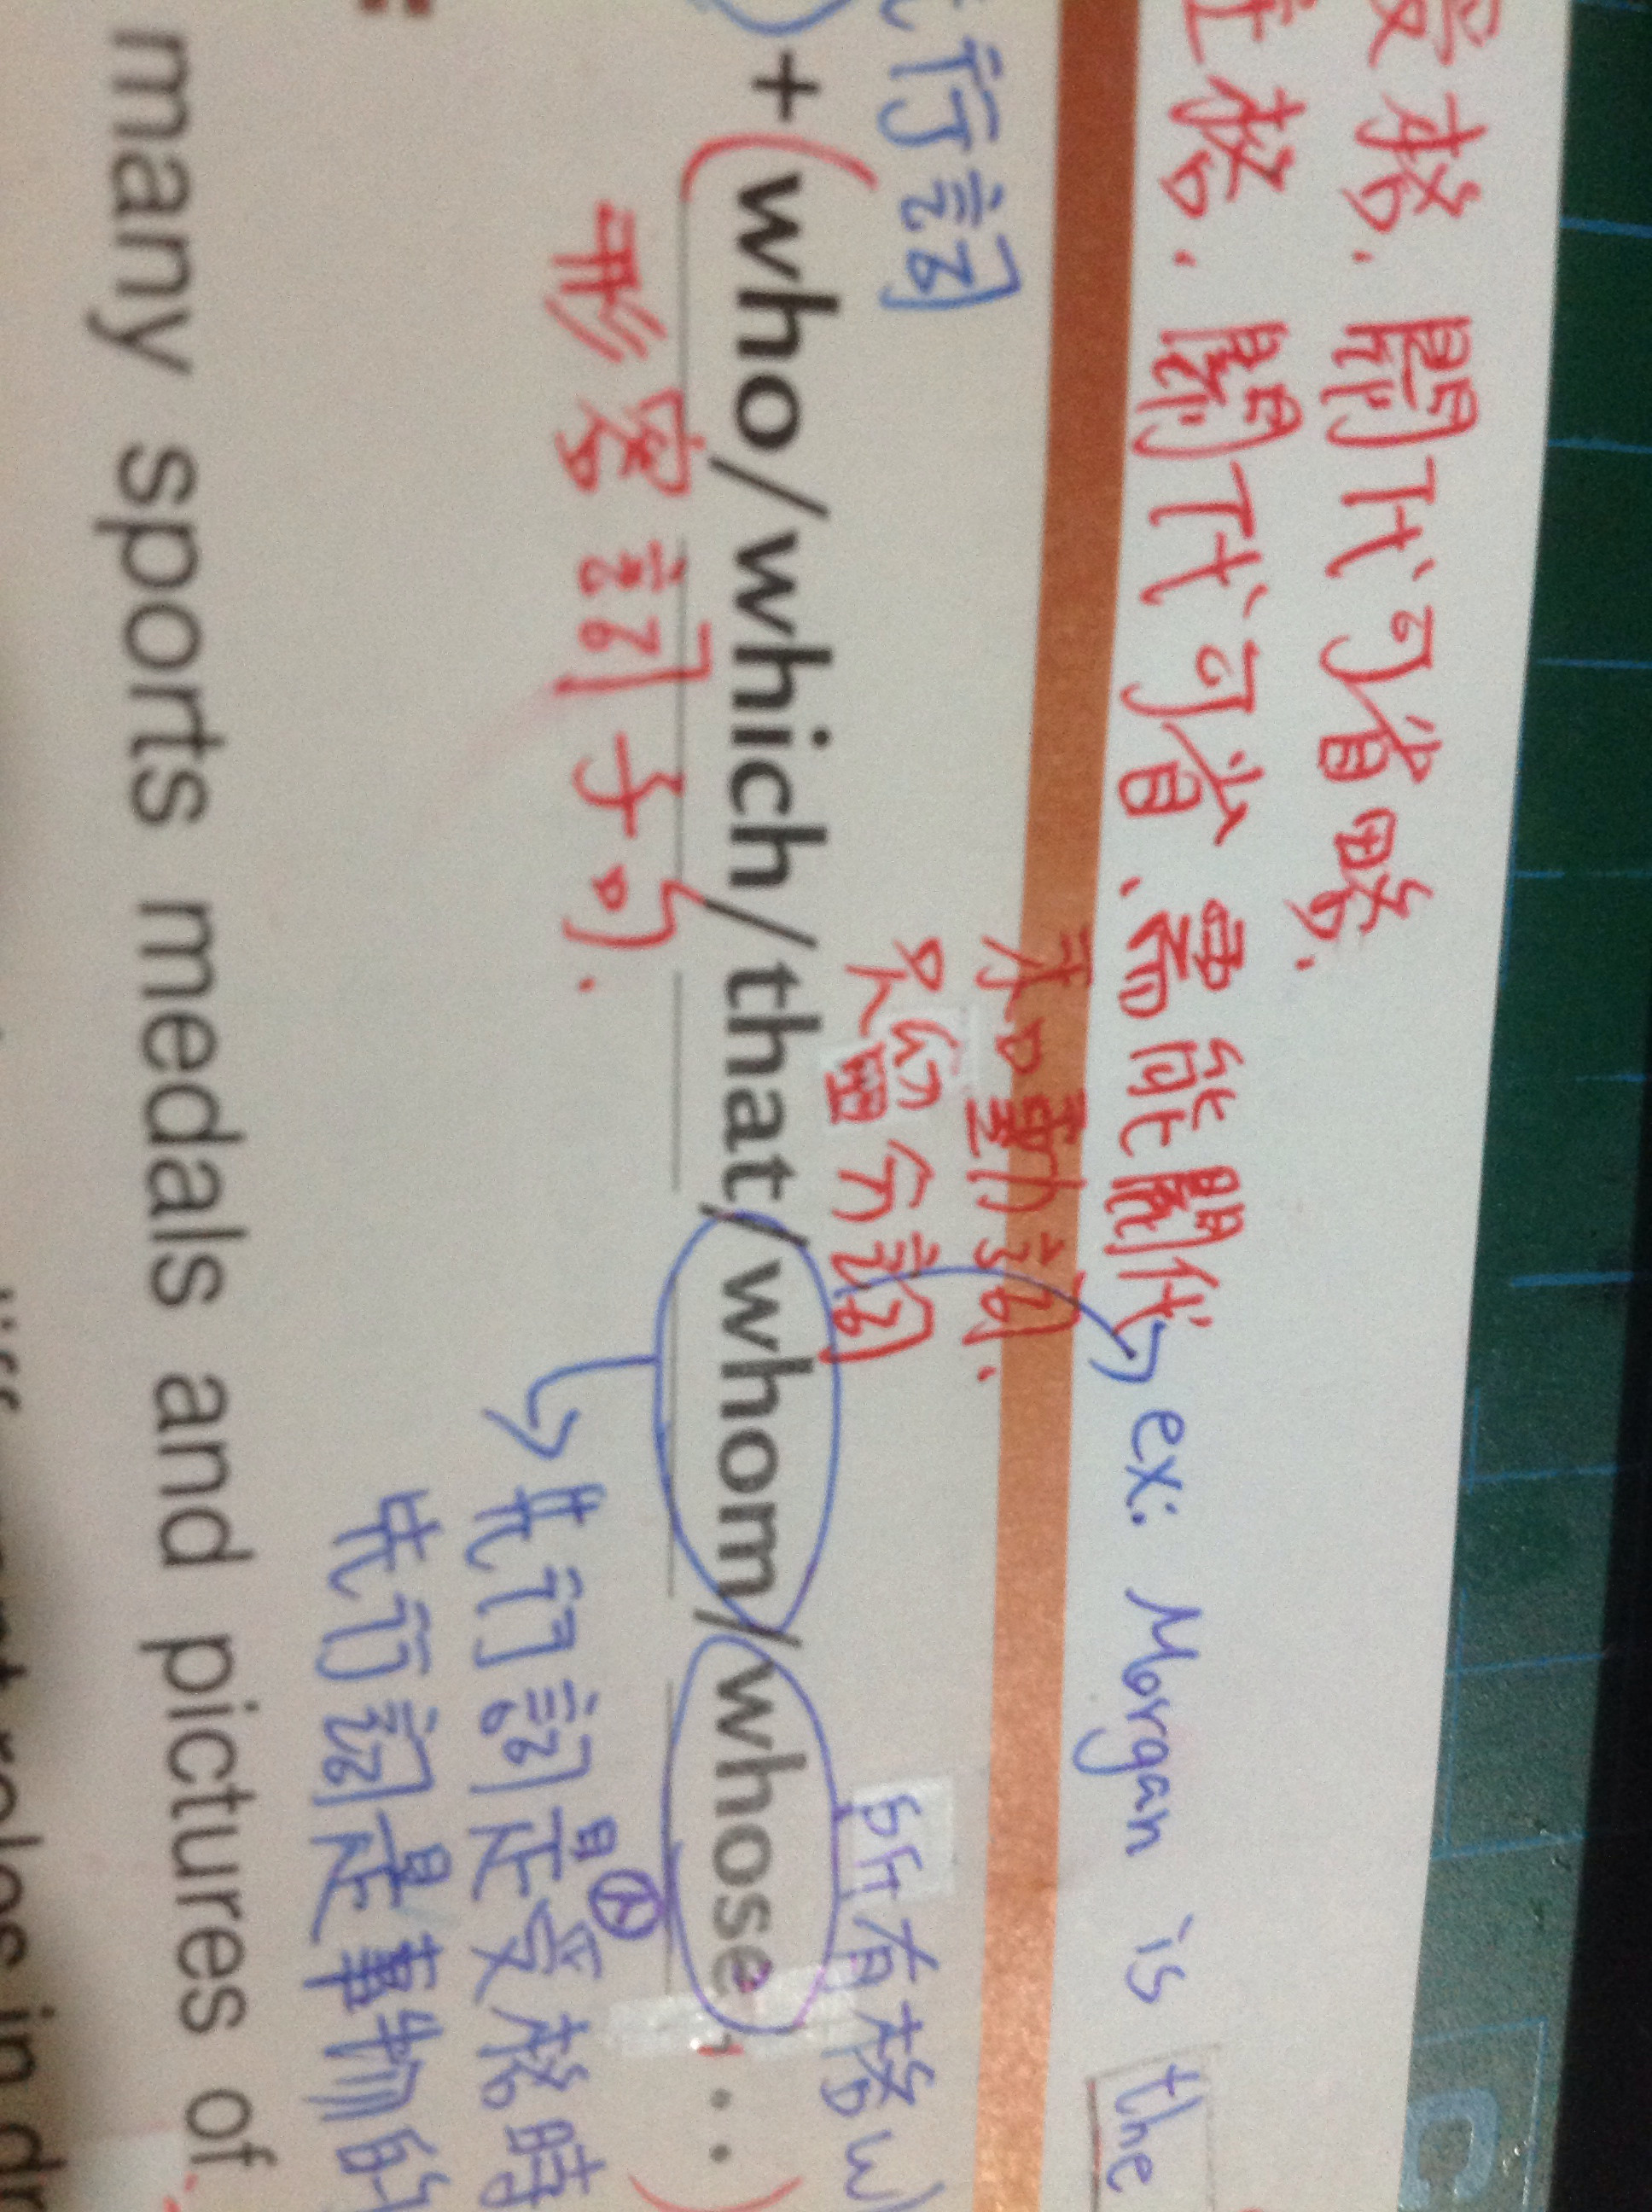 受格. 關代可省略.
主格. 關代可省、需能關代
ex: Morgan is the
未加動詞.
只留介詞
先行詞
所有格 w
+ (who/which/that/whom/whose...)
形容詞子句.
先行詞是受格時
人
先行詞是事物時
many sports medals and pictures of
roles in dr